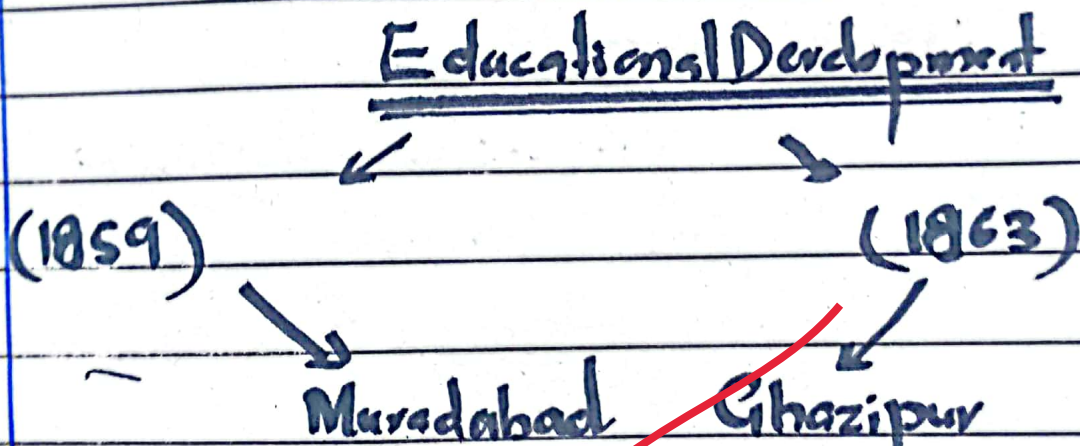 Educational Development
(1859) (1863)
Muradabad Ghazipur